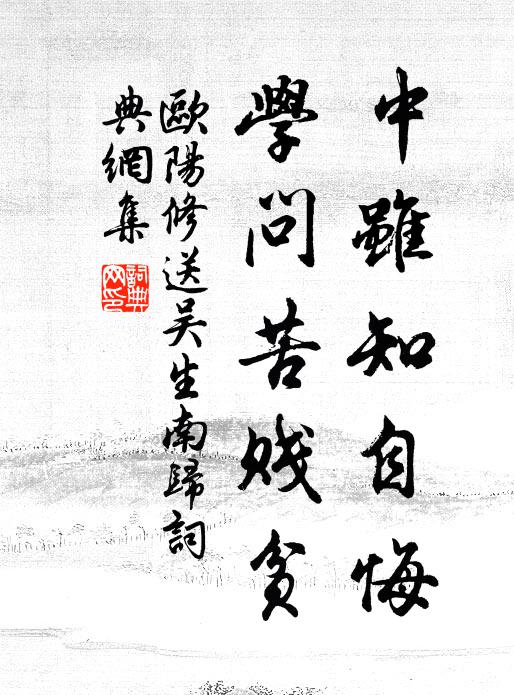 中雖知自悔
學問苦賤貧
歐陽修送吴生南歸詞
典網集
詞典网印